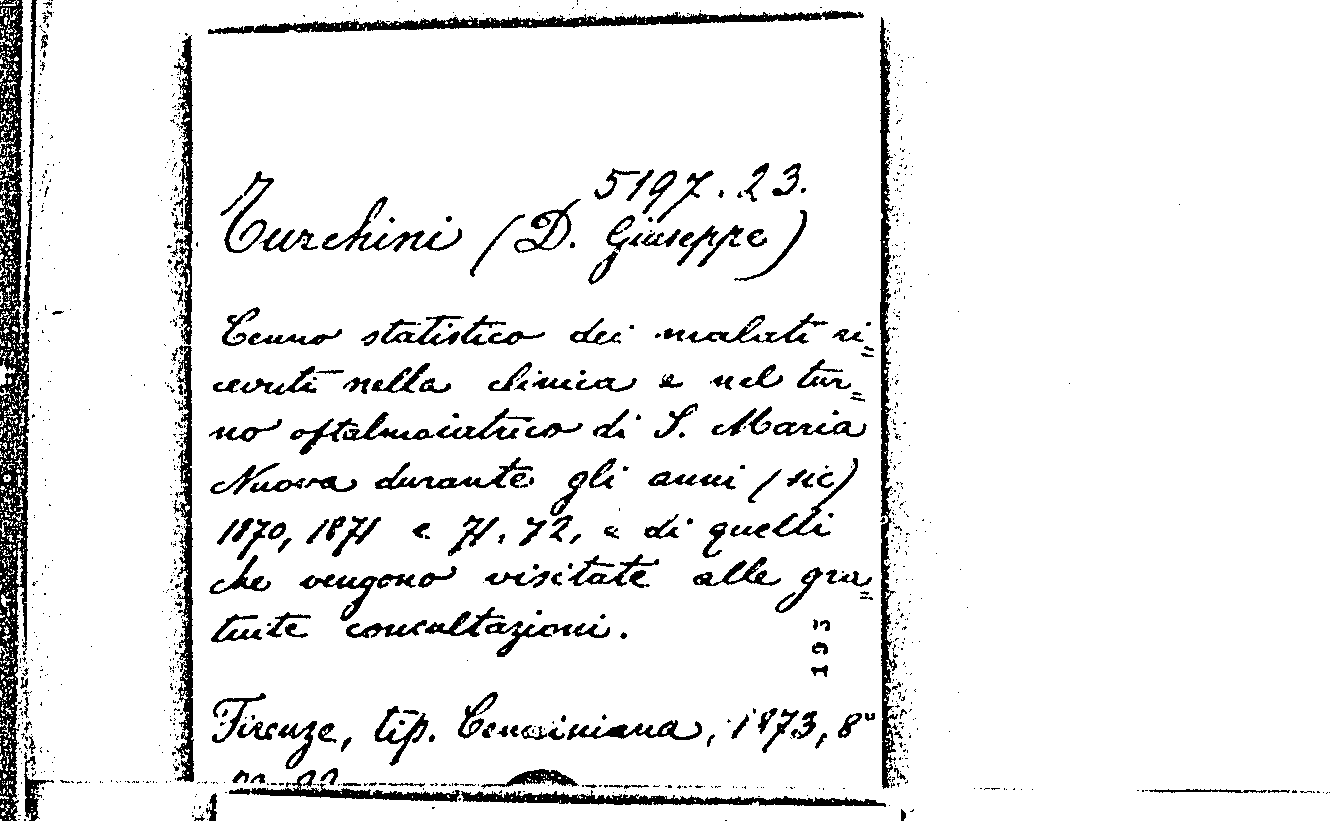 5197.23.
Turchini (D. Giuseppe)
Cenno statistico dei malati ri=
cevuti nella clinica e nel tur=
no oftalmoiatrico di S. Maria
Nuova durante gli anni (sic)
1870, 1871 e 71.72, e di quelli
che vengono visitate alle gra=
tuite consultazioni.
193
Firenze, tip. Cenniniana, 1873, 8°